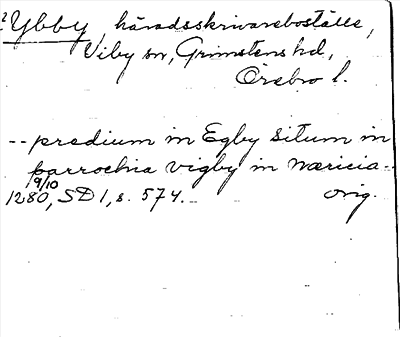 2 Ybby, häradsskrivareboställe,
Viby sn, Grimstens hd,
Örebro l.
-- predium in Egby situm in
parrochia vigby in næricia--
19/10
1280, SD 1, s. 574. orig.